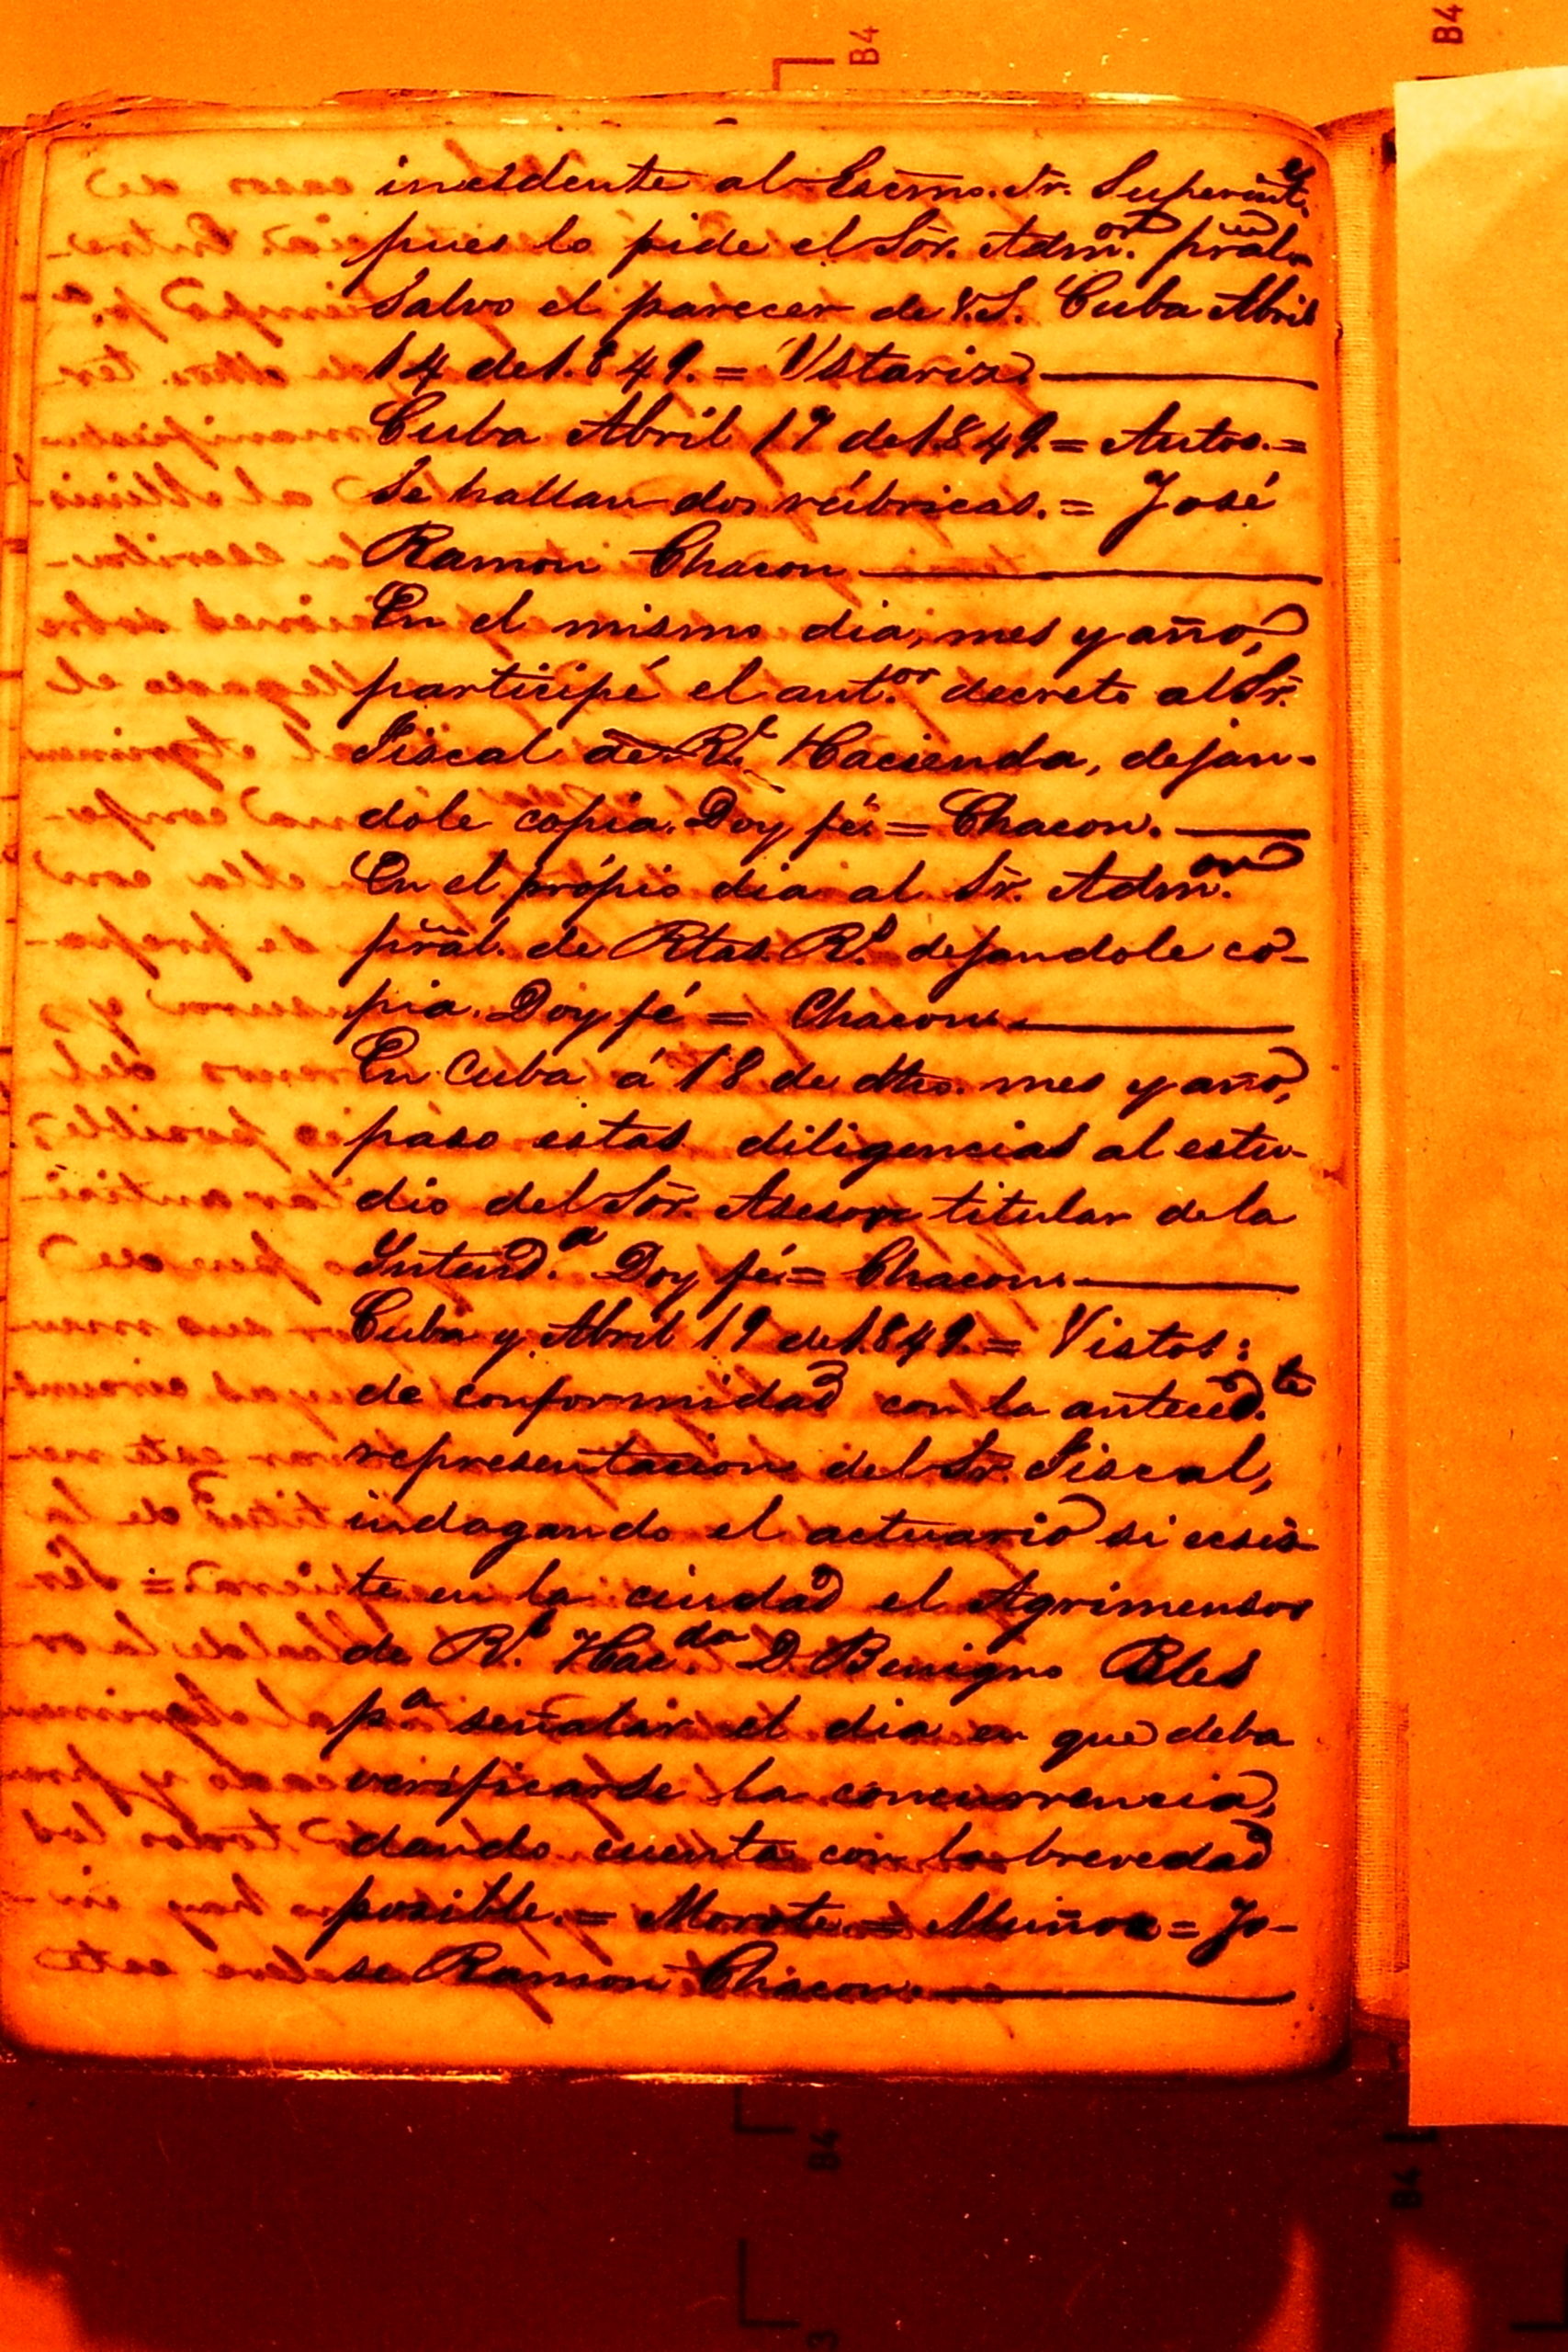 B4
B4
insidente al Escmo. Sr. Superint.e
pues lo pide el Sōr. Adm.or prāl.
Salvo el parecer de V.S. Cuba Abril
14 de 1.849. = Ustariz.
Cuba Abril 17 de 1.849. = Autos. =
Se hallan dos rúbricas. = José
Ramon Chacon
En el mismo dia, mes y año,
participé el ant.or decreto al Sr.
Fiscal de R.l Hacienda, dejan-
dole copia. Doy fé = Chacon.
En el própio dia al Sr. Adm.or
prāl. de Rtas. R.s dejandole co-
pia. Doy fé = Chacon.
En Cuba á 18 de dho. mes y año,
paso estas diligencias al estu-
dio del Sōr. Asesor titular de la
Intend.a Doy fé = Chacon.
Cuba y Abril 19 de 1.849. = Vistos:
de conformidad con la anteced.te
representacion del Sr. Fiscal,
indagando el actuario si ecsis-
te en la ciudad el Agrimensor
de R.l Hac.da D. Benigno Bles
p.a señalar el dia en que deba
verificarse la concurrencia,
dando cuenta con la brevedad
posible. = Morote = Muñoz = Jo-
se Ramon Chacon.
B4
B4
3